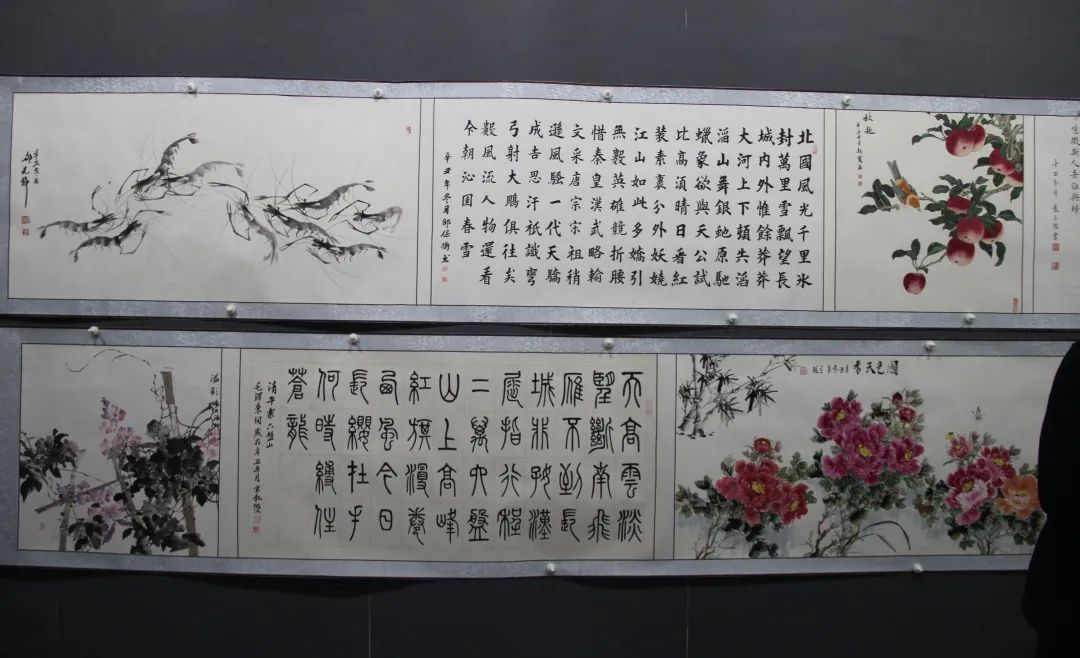 北國風光千里冰
封萬里雪飄望長
城內外惟餘莽莽
大河上下頓失滔
滔山舞銀蛇原馳
蠟象欲與天公試
比高須晴日看紅
裝素裹分外妖嬈
江山如此多嬌引
無數英雄競折腰
惜秦皇漢武略輸
文采唐宗宋祖稍
遜風騷一代天驕
成吉思汗衹識彎
弓射大鵬俱往矣
數風流人物還看
今朝沁園春雪
辛丑年冬月
秋趣
天高雲淡
望斷南飛
雁不到長
城非好漢
屈指行程
二萬六盤
山上高峰
紅旗漫卷
西風今日
長纓在手
何時縛住
蒼龍
清平樂六盤山
毛澤東詞
國色天香